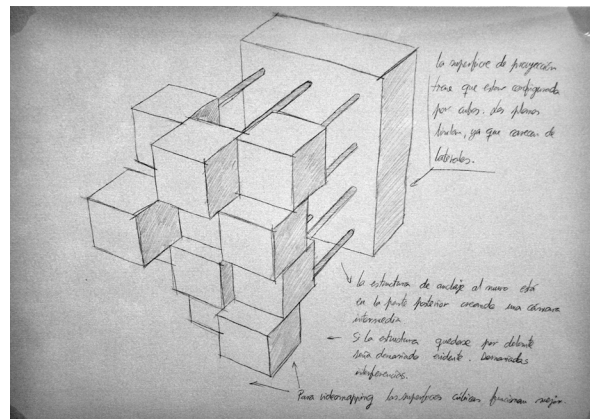 la superficie de proyección
tiene que estar configurada
por cubos. Los planos
limitan, ya que carecen de
laterales.
la estructura de anclaje al muro está
en la parte posterior creando una cámara
intermedia
Si la estructura quedase por delante
sería demasiado evidente. Demasiadas
interferencias.
Para videomapping las superficies cúbicas funcionan mejor.